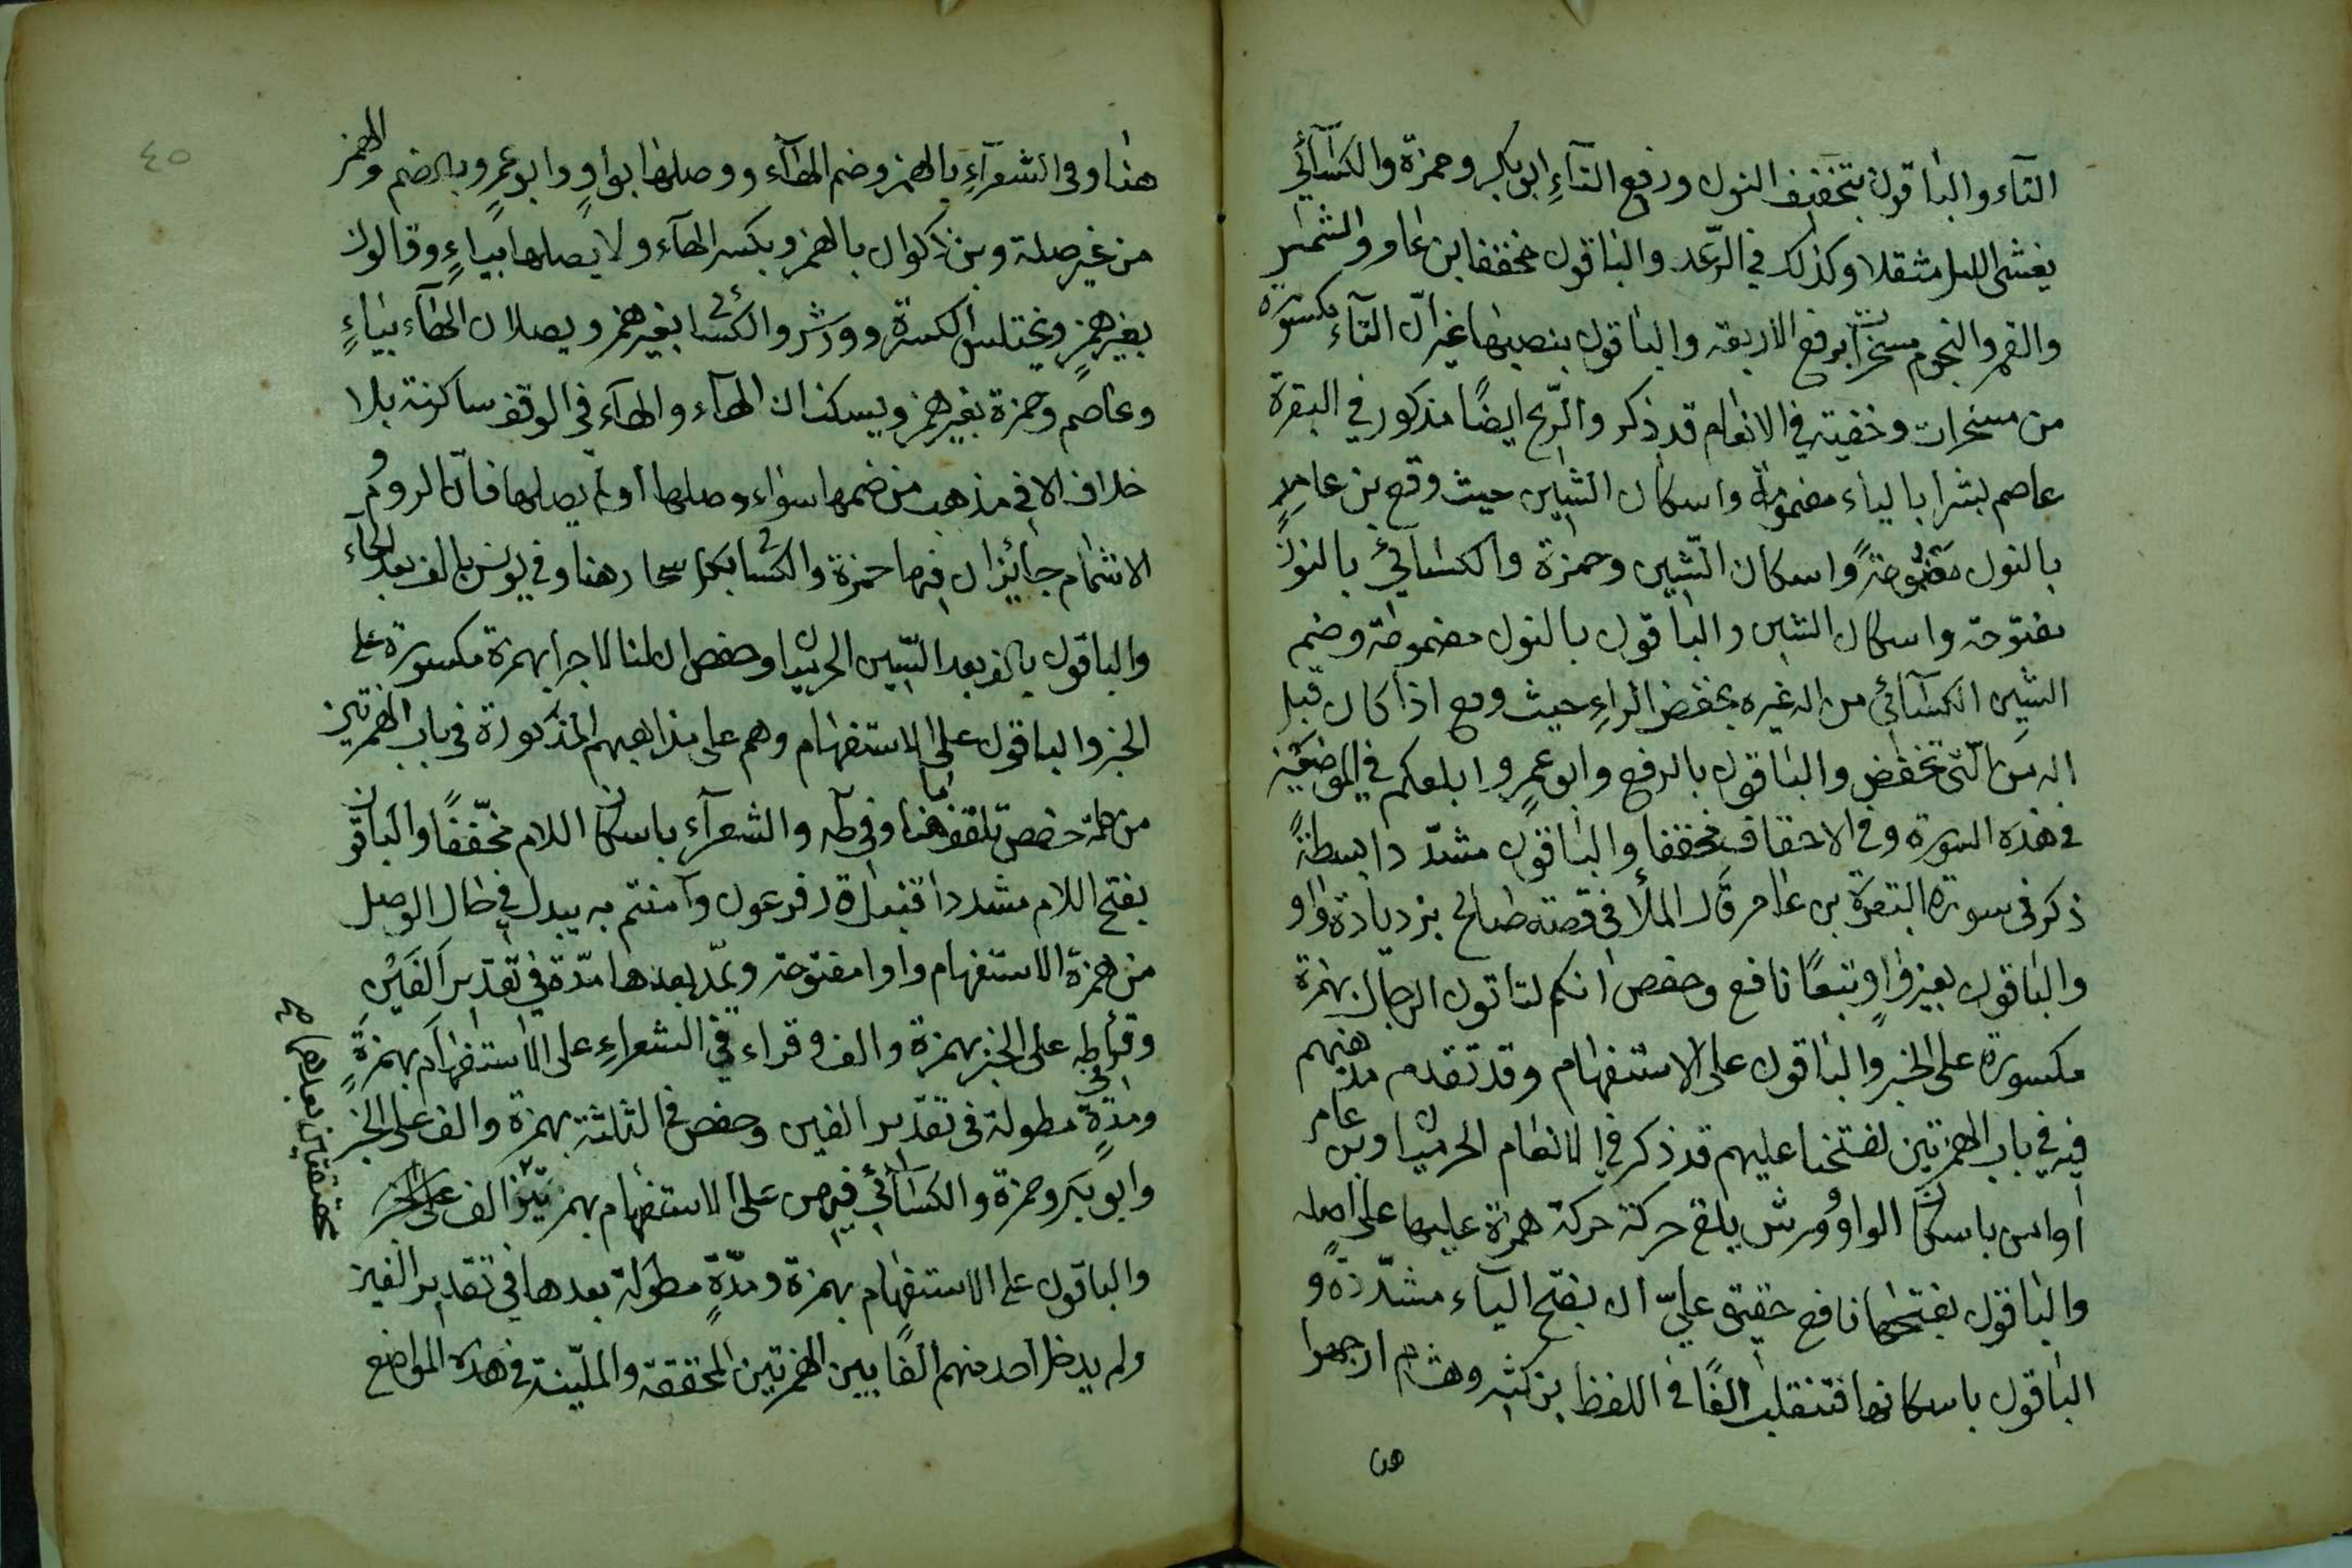 التآء والباقون بتخفيف النون ورفع التآءِ ابو بكر وحمزة والكسآئي
يغشى الليل مثقلا وكذلك في الرّعد والباقون مخففا بن عامر والشمس
والقمر والنجوم مسخرات برفع الاربعة والباقون بنصبها غير انّ التآء مكسورة
من مسخرات وخفية في الانعام قد ذكر والرّيح ايضًا مذكور في البقرة
عاصم بشرا بالياء مضمومة واسكان الشين حيث وقع بن عامر
بالنون مضمومة واسكان الشّين وحمزة والكسآئي بالنون
مفتوحة واسكان الشين والباقون بالنون مضمومة وضم
الشين الكسآئي من اله غيره بخفض الراءِ حيث وقع اذا كان قبل
اله من الّتي تخفض والباقون بالرفع وابو عمرٍو ابلغكم في الموضعين
في هذه السورة وفي الاحقاف مخففا والباقون مشدّدا بسطة
ذكر في سورة البقرة بن عامر قال الملأ في قصة صالح بزديادة واو
والباقون بغير واوٍ تبعًا نافع وحفص انكم لتاتون الرجال بهمزة
مكسورة على الخبر والباقون على الاستفهام وقد تقدم مذهبهم
فيه في باب الهمزتين لفتحنا عليهم قد ذكر في الانعام الحرميان وبن عامر
اوامن باسكان الواو وورش يلقى حركة حركة همزة عليها على اصله
والباقون بفتحها نافع حقيق عليّ ان بفتح اليآء مشدّدة و
الباقون باسكانها فتنقلب الفًا في اللفظ بن كثير وهشام ارجهوا
هنا
٤٥
هنا وفي الشعرآءِ بالهمز وضم الهآء ووصلها بواوٍ وابو عمرٍو بالضم والهمز
من غير صلة وبن ذكوان بالهمز وبكسر الهآء ولا يصلها بياءٍ وقالون
بغير همزٍ ويختلس الكسرة وورش والكسائي بغير همز ويصلان الهآء بياءٍ
وعاصم وحمزة بغير همز ويسكنان الهآء والهآء في الوقف ساكنة بلا
خلاف الا في مذهب من ضمها سواء وصلها أو لم يصلها فانّ الروم و
الاشمام جائزان فيها حمزة والكسائي بكل سحار هنا وفي يونس بالف بعد الحآء
والباقون بالف بعد السّين الحرميان وحفص ان لنا لاجرا بهمزة مكسورة على
الخبر والباقون على الاستفهام وهم على مذاهبهم المذكورة في باب الهمزتين
من كلمة حفص تلقف هنا وفي طه والشعرآءِ باسكان اللام مخففًا والباقون
بفتح اللام مشددا قنبل قال فرعون وآمنتم به يبدل في حال الوصل
من همزة الاستفهام واوا مفتوحة ويمدّ بعدها مدّة في تقدير الفَين
وقرأ في طه على الخبر بهمزة والف وقراء في الشعراءِ على الاستفهام بهمزةٍ
ومدّةٍ مطولة في تقدير الفين وحفص في الثلثة بهمزة والف على الخبر
وابو بكر وحمزة والكسآئي فيهن على الاستفهام بهمزتين الف على الخبر
محققتين بعدهما صح
والباقون على الاستفهام بهمزة ومدّةٍ مطولة بعدها في تقدير الفين
ولم يدخل احد منهم الفًا بين الهمزتين المحققة والمليّنة في هذه المواضع